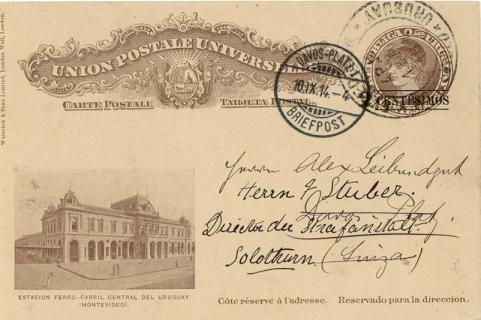 UNION POSTALE UNIVERSELLE
CARTE POSTALE TARJETA POSTAL
REPUBLICA O. DEL URUGUAY
CENTESIMOS
URUGUAY
DAVOS-PLATZ
10.IX.14.-4
BRIEFPOST
Waterlow & Sons Limited, London Wall, London.
Herrn Alex Leibundgut
Herrn G Stuber.
Davos Platz
Director der Strafanstalt
Solothurn (Suiza)
ESTACION FERRO-CARRIL CENTRAL DEL URUGUAY
(MONTEVIDEO).
Côté réservé à l'adresse. Reservado para la direccion.